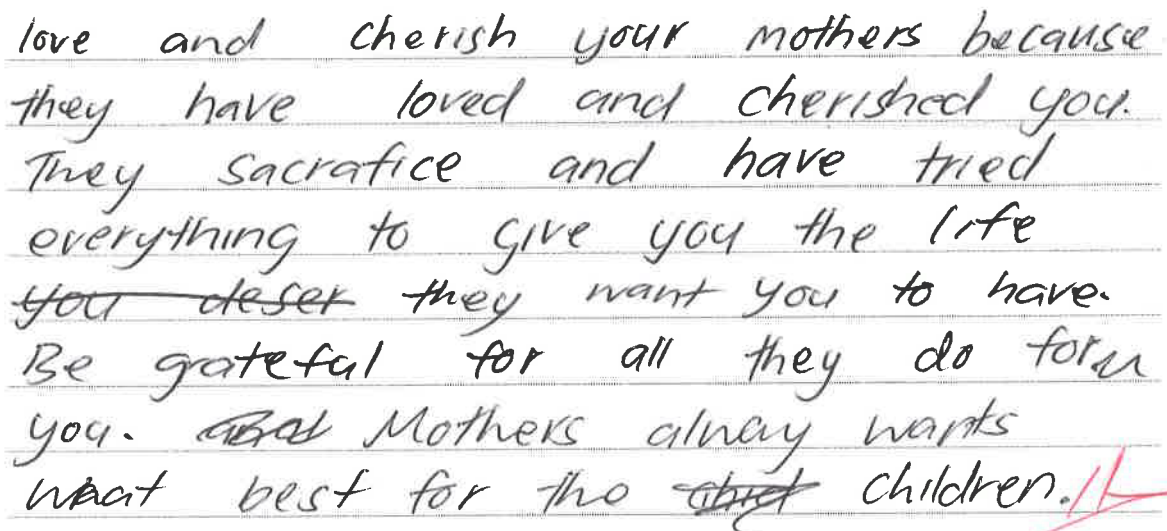 love and cherish your mothers because
they have loved and cherished you.
They sacrafice and have tried
everything to give you the life
you deser they want you to have.
Be grateful for all they do for
you. Mothers alway wants
what best for the children.